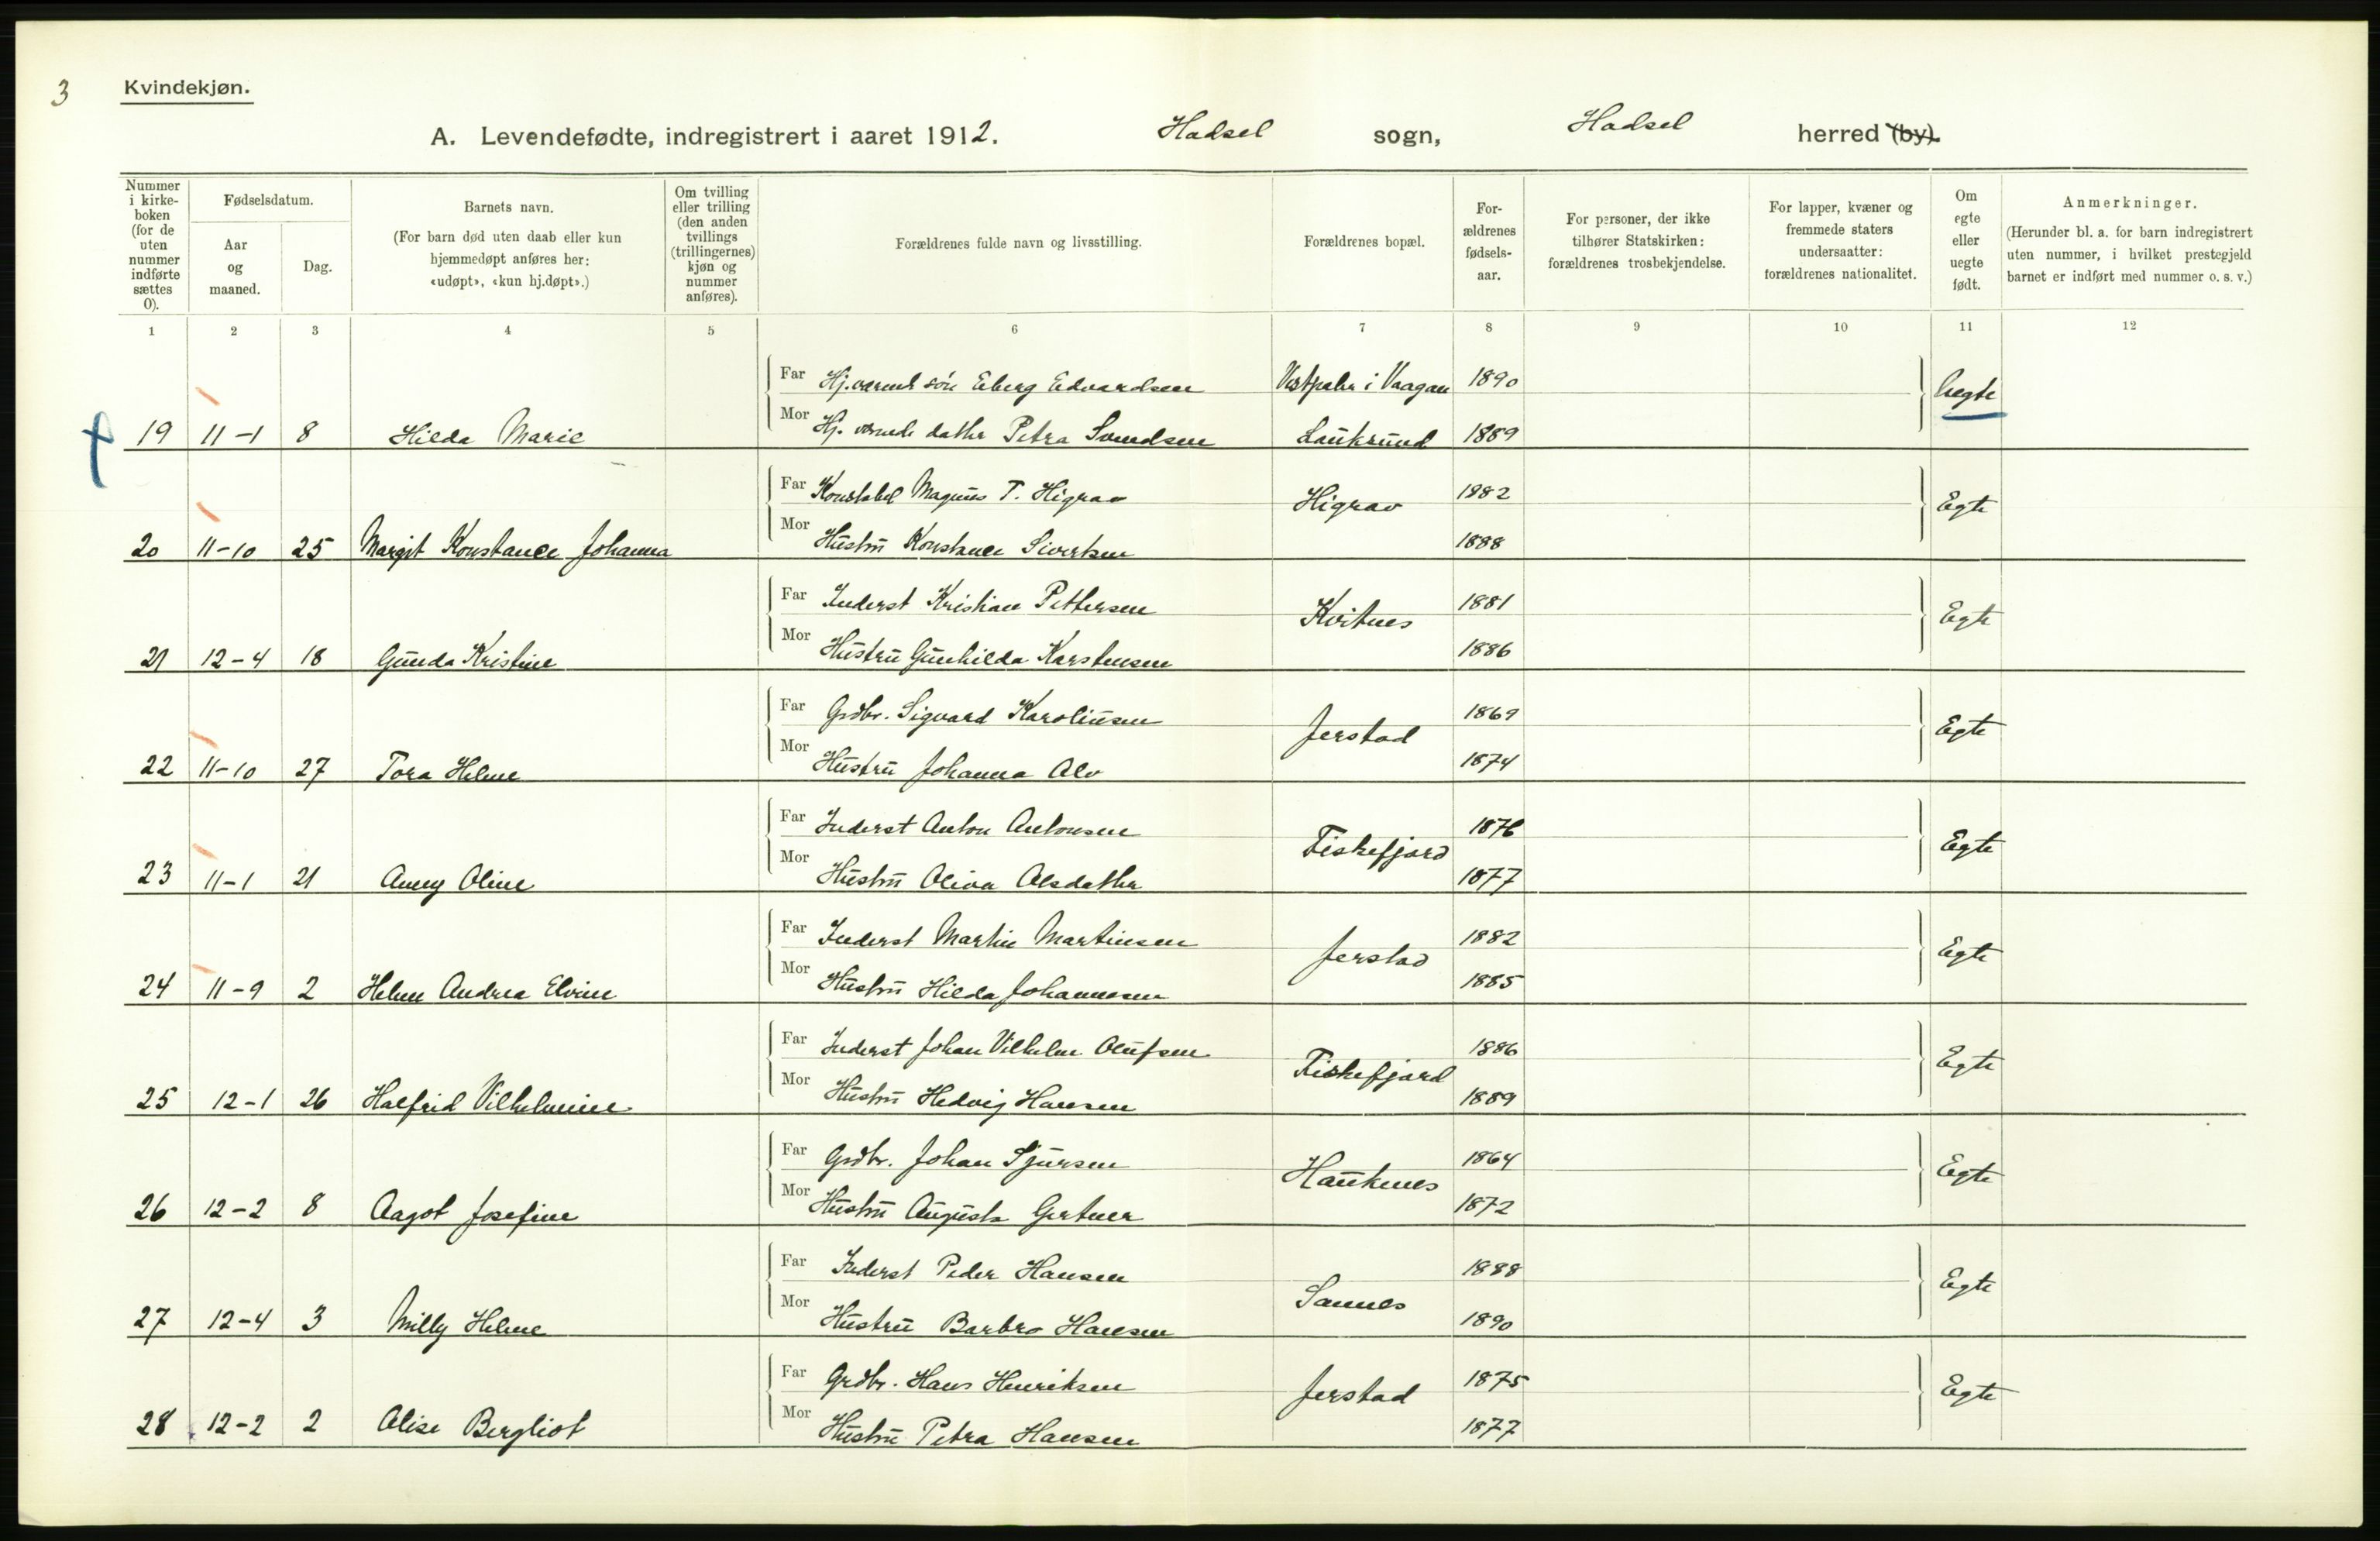 3
Kvindekjøn.
A. Levendefødte, indregistrert i aaret 1912. Hadsel sogn, Hadsel herred (by).
Nummer i kirkeboken (for de uten nummer indførte sættes 0).
Fødselsdatum.
Aar og maaned.
Dag.
Barnets navn.
(For barn død uten daab eller kun hjemmedøpt anføres her: «udøpt», «kun hj.døpt».)
Om tvilling eller trilling (den anden tvillings (trillingernes) kjøn og nummer anføres).
Forældrenes fulde navn og livsstilling.
Forældrenes bopæl.
Forældrenes fødselsaar.
For personer, der ikke tilhører Statskirken: forældrenes trosbekjendelse.
For lapper, kvæner og fremmede staters undersaatter: forældrenes nationalitet.
Om egte eller uegte født.
Anmerkninger.
(Herunder bl. a. for barn indregistrert uten nummer, i hvilket prestegjeld barnet er indført med nummer o. s. v.)
1 2 3 4 5 6 7 8 9 10 11 12
Far Hj.værend søn Eberg Edvardsen i Vaagan 1890 Uegte
19 11-1 8 Hilda Marie Mor Hj. værende datter Petra Svendsen Laukrund 1889
Far Konstabel Magnus T. Higrav Higrav 1882 Egte
20 11-10 25 Margit Konstance Johanna Mor Hustru Konstance Sivertsen 1888
Far Inderst Kristian Pettersen Kvitnes 1881 Egte
21 12-4 18 Gunda Kristine Mor Hustru Gunhilda Karstensen 1886
Far Grdbr. Sigvard Karoliusen Jerstad 1869 Egte
22 11-10 27 Tora Helene Mor Hustru Johanna Alv 1874
Far Inderst Anton Antonsen Fiskefjord 1876 Egte
23 11-1 21 Anny Oline Mor Hustru Oliva Olsdatter 1877
Far Inderst Martin Martinsen Jerstad 1882 Egte
24 11-9 2 Helene Andrea Elvine Mor Hustru Hilda Johannesen 1885
Far Inderst Johan Vilhelm Olufsen Fiskefjord 1886 Egte
25 12-1 26 Halfrid Vilhelmine Mor Hustru Hedvig Hansen 1889
Far Grdbr. Johan Sjursen Haukenes 1864 Egte
26 12-2 8 Aagot Josefine Mor Hustru Augusta Gertner 1872
Far Inderst Peder Hansen Sannes 1888 Egte
27 12-4 3 Milly Helene Mor Hustru Barbro Hansen 1890
Far Grdbr. Hans Henriksen Jerstad 1875 Egte
28 12-2 2 Alise Bergliot Mor Hustru Petra Hansen 1877